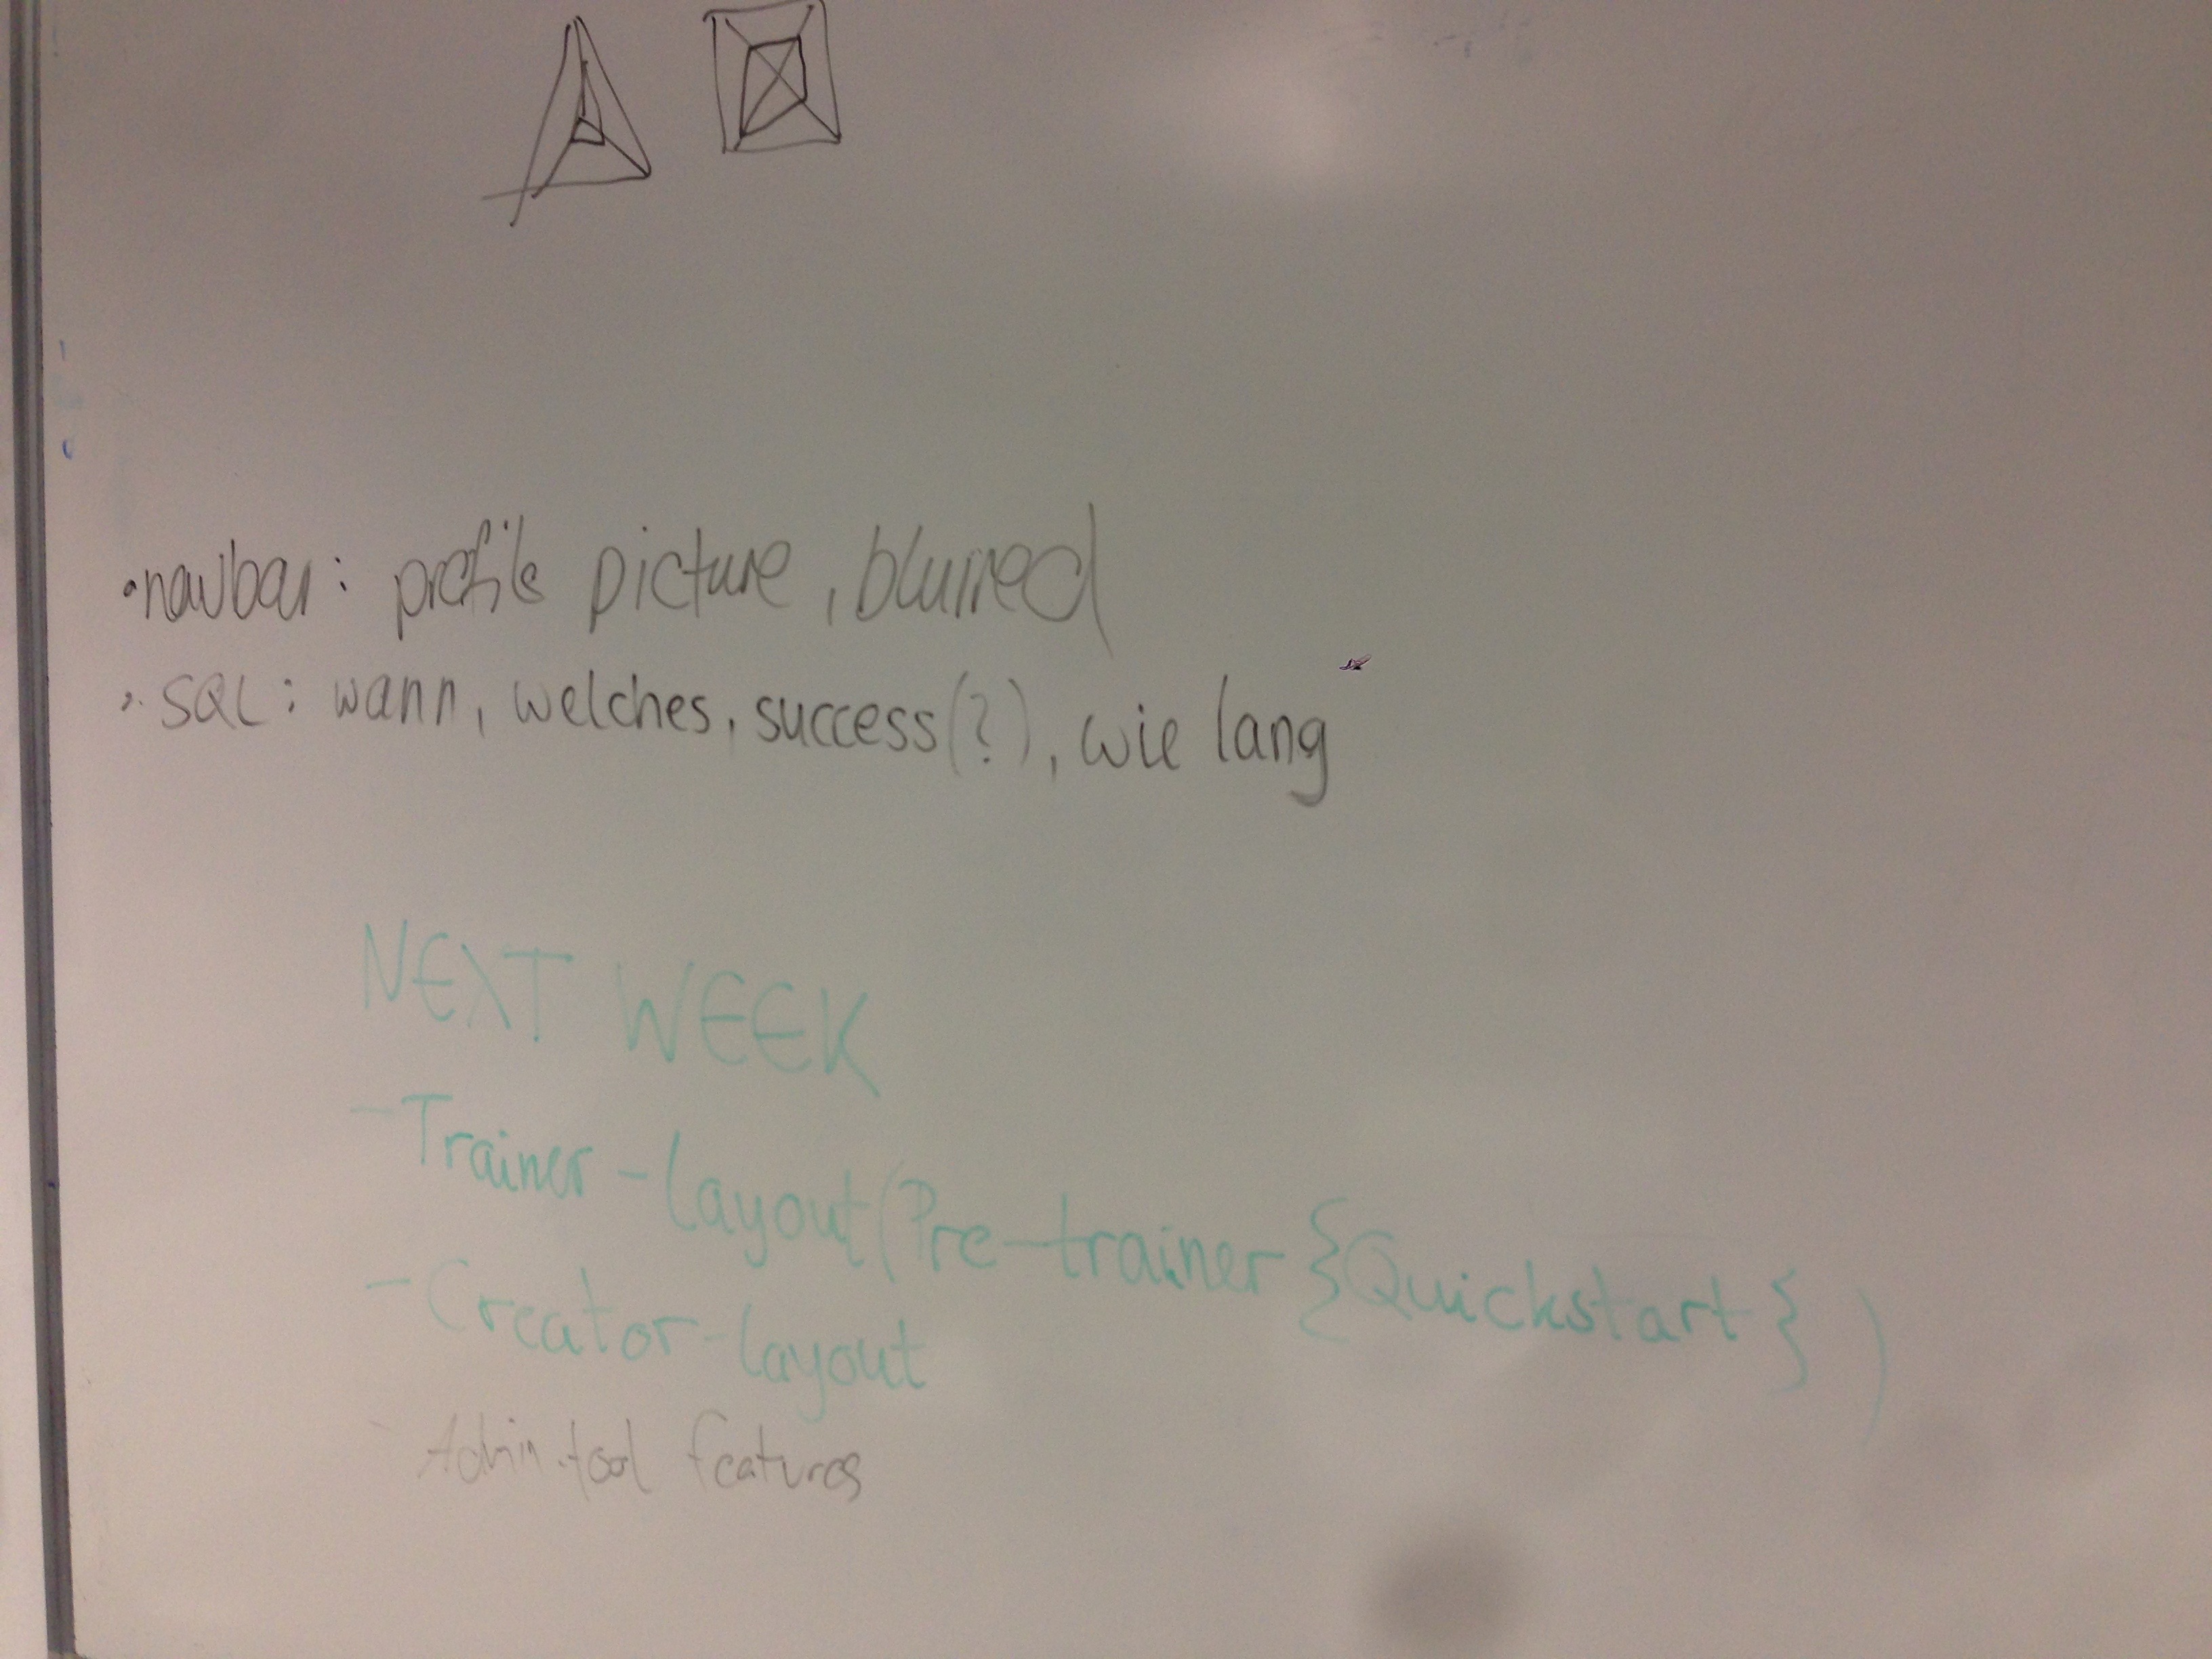 • navbar: profile picture, blurred
• SQL: wann, welches, success(?), wie lang
NEXT WEEK
- Trainer-layout (Pre-trainer {Quickstart})
- Creator-layout
- Admin-tool features